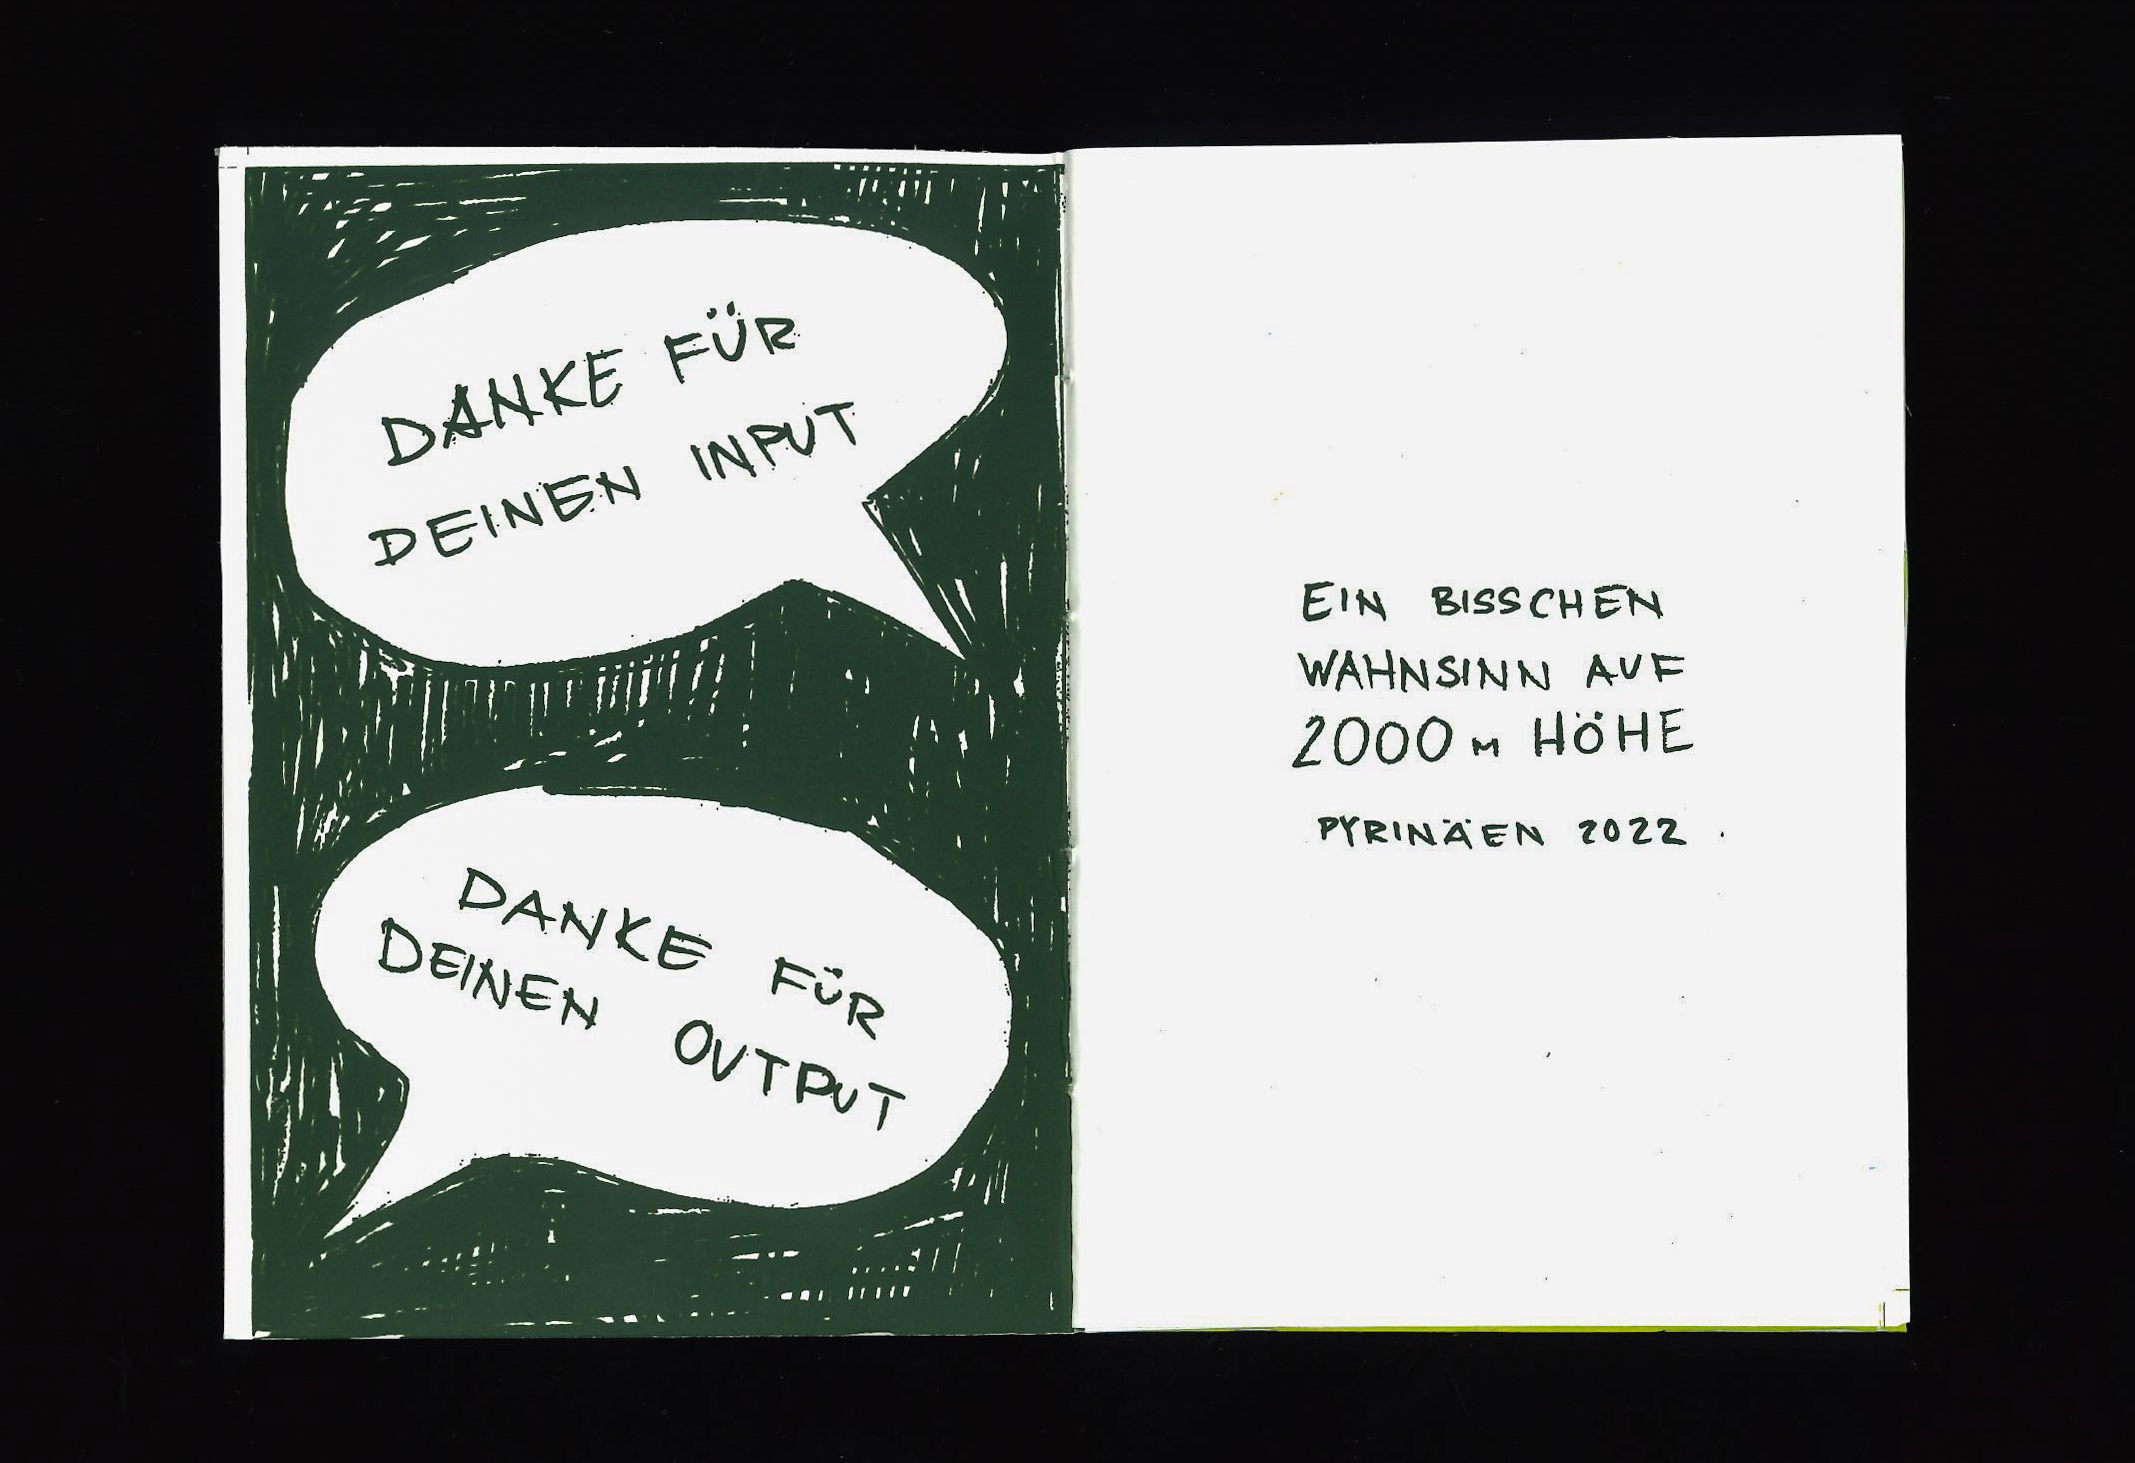 DANKE FÜR
DEINEN INPUT
DANKE FÜR
DEINEN OUTPUT
EIN BISSCHEN
WAHNSINN AUF
2000 M HÖHE
PYRINÄEN 2022